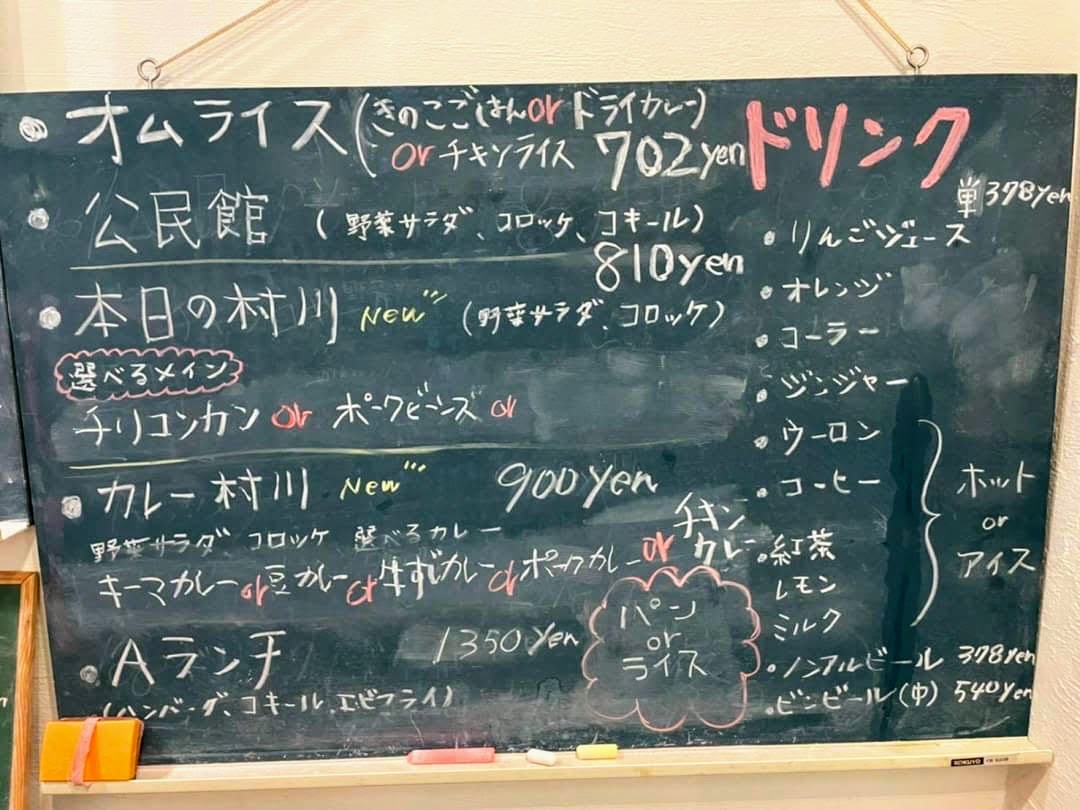 オムライス（きのこごはんorドライカレー）
orチキンライス 702yen
公民館 （野菜サラダ、コロッケ、コキール）
810yen
本日の村川 New （野菜サラダ、コロッケ）
選べるメイン
チリコンカン or ポークビーンズ or
カレー村川 New 900yen
野菜サラダ コロッケ 選べるカレー
キーマカレーor豆カレーor牛すじカレーorポークカレーorチキンカレー
Aランチ 1350yen
（ハンバーグ、コキール、エビフライ）
パン
or
ライス
ドリンク
単378yen
りんごジュース
オレンジ
コーラー
ジンジャー
ウーロン
コーヒー
紅茶
レモン
ミルク
ホット
or
アイス
ノンアルビール 378yen
ビンビール（中） 540yen
KOKUYO